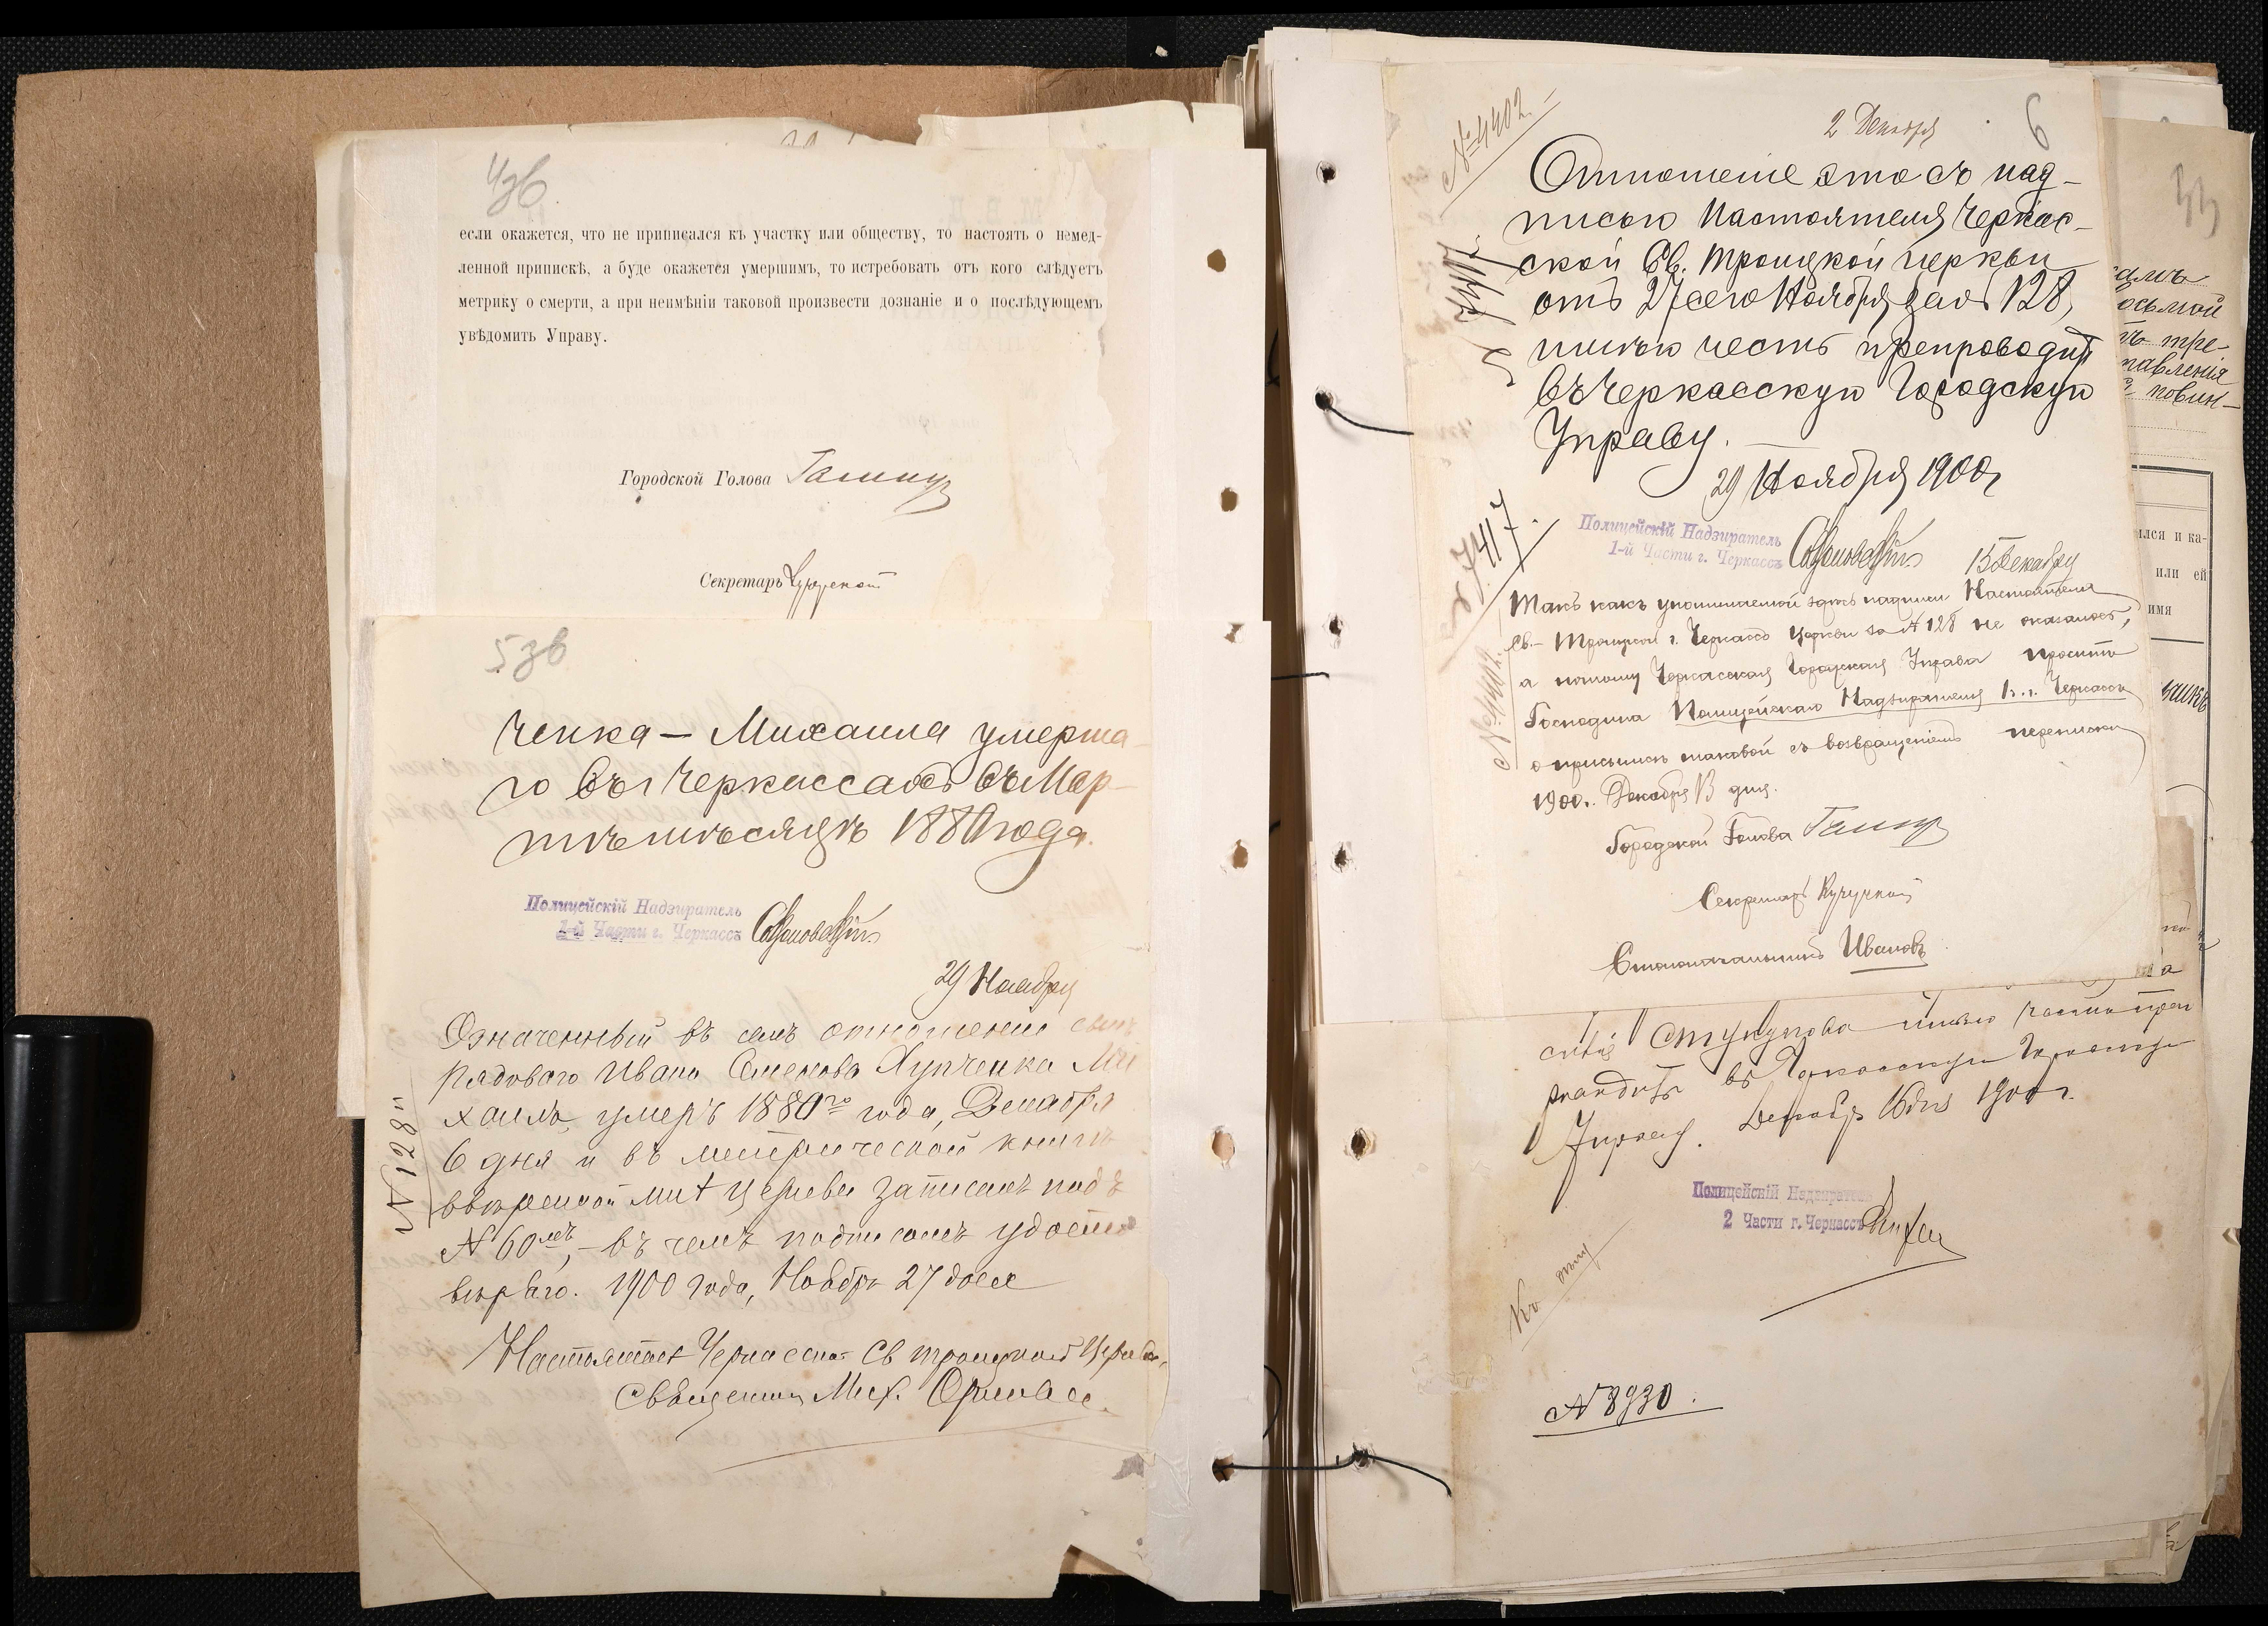 4зв
если окажется, что не приписался къ участку или обществу, то настоять о немед-
ленной припискѣ, а буде окажется умершимъ, то истребовать отъ кого слѣдуетъ
метрику о смерти, а при неимѣніи таковой произвести дознаніе и о послѣдующемъ
увѣдомить Управу.
Городской Голова
Секретарь
5зв
ченка — Михаила умерша-
го въ г Черкассахъ въ Мар-
тѣ мѣсяцѣ 1880 года.
Полицейскій Надзиратель
1-й Части г. Черкассъ
29 Ноября
Означенный въ семъ отношеніи сынъ
рядового Ивана Семенова Хупченка Ми
хаилъ, умеръ 1880го года, Декабря
6 дня и въ метрической книгѣ
ввѣренной мнѣ церкви записанъ подъ
№ 60мъ, - въ чемъ подписомъ удосто
вѣряю. 1900 года, Ноября 27 дня
Настоятель Черкасской Св Троицкой Церкви,
Священникъ Мих.
№ 128й
№ 4402.
2 Декабря
6
Отношеніе это съ над-
писью Настоятеля Черкас-
ской Св. Троицкой церкви
отъ 27 сего Ноября за № 128,
имѣю честь препроводить
въ Черкасскую Городскую
Управу.
29 Ноября 1900 г
Полицейскій Надзиратель
1-й Части г. Черкассъ
15 Декабря
№ 7417.
Такъ какъ упоминаемой здѣсь надписи Настоятеля
Св.- Троицкой г. Черкассъ церкви за № 128 не оказалось,
а потому Черкасская Городская Управа проситъ
Господина Полицейскаго Надзирателя 1 ч. г. Черкассъ
о присылкѣ таковой съ возвращеніемъ переписки
1900 г. Декабря 13 дня.
№ 4402.
Городской Голова
Секретарь Кучурской
Столоначальникъ Ивановъ
въ Черкасскую Городскую
Управу. Декабря 16 дня 1900 г.
Полицейскій Надзиратель
2 Части г. Черкассъ
Къ дѣлу
№ 8930.
осьмой
тре-
повин-
или ей
имя